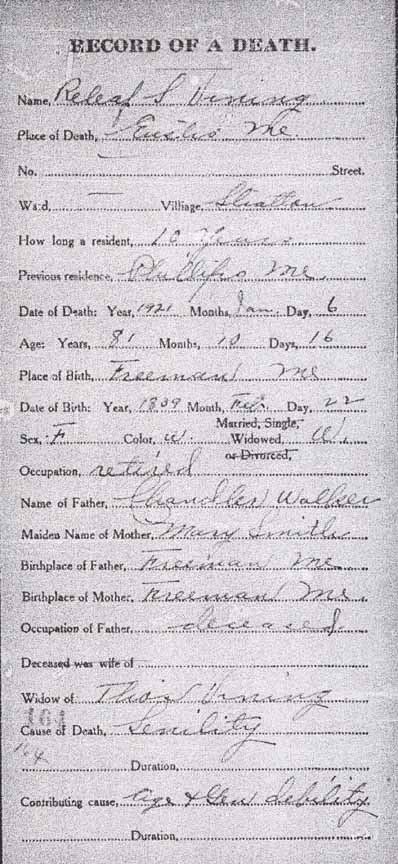 RECORD OF A DEATH.
Name, Releaf S Vining
Place of Death, Eustis Me.
No. Street.
Ward, — Villiage, Stratton
How long a resident, 10 Years.
Previous residence, Phillips Me.
Date of Death: Year, 1921 Months, Jan. Day, 6
Age: Years, 81 Months, 10 Days, 16
Place of Birth, Freeman Me
Date of Birth: Year, 1839 Month, Feb. Day, 22
Sex, F Color, W. Married, Single, Widowed, or Divorced, W.
Occupation, retired
Name of Father, Chandler Walker
Maiden Name of Mother, Mary Smith
Birthplace of Father, Freeman Me.
Birthplace of Mother, Freeman Me.
Occupation of Father, deceased
Deceased was wife of
Widow of Vining
Cause of Death, Senility
164
Duration,
Contributing cause, age & Gen debility
Duration,